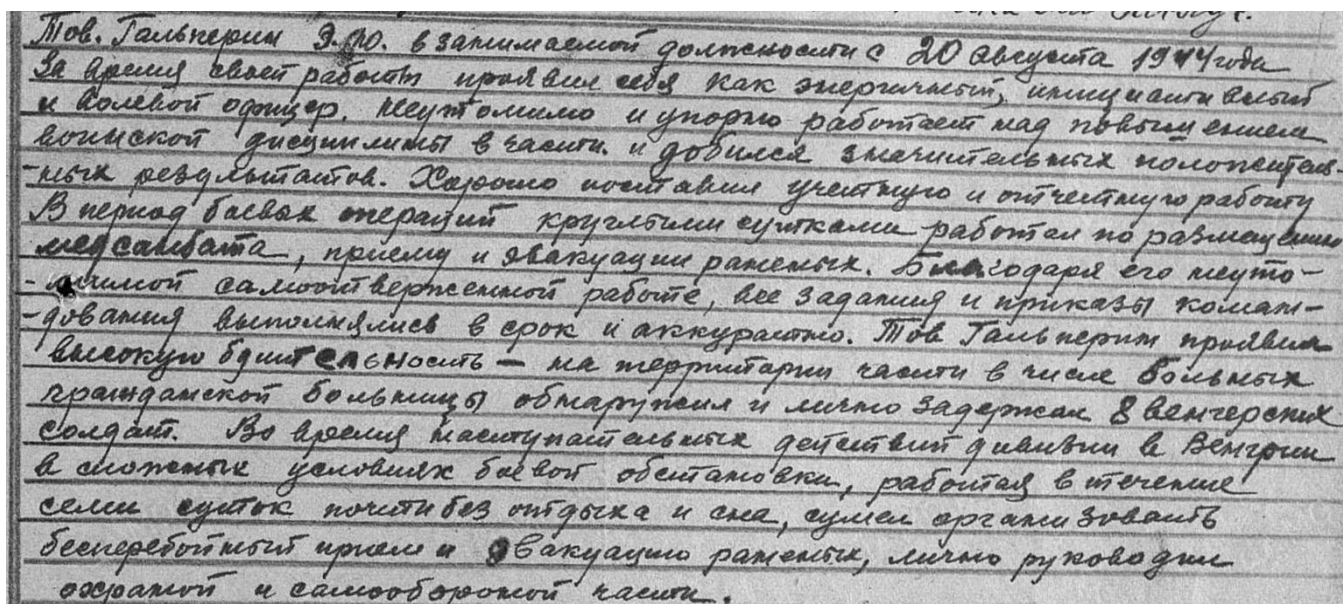 Тов. Гальперин Э.Ю. в занимаемой должности с 20 августа 1944 года
За время своей работы проявил себя как энергичный, инициативный
и волевой офицер. Неутомимо и упорно работает над повышением
воинской дисциплины в части и добился значительных положитель-
-ных результатов. Хорошо поставил учетную и отчетную работу
В период боевых операций круглыми сутками работал по размещению
медсанбата, приему и эвакуации раненых. Благодаря его неуто-
-мимой самоотверженной работе, все задания и приказы коман-
-дования выполнялись в срок и аккуратно. Тов Гальперин проявил
высокую бдительность - на территории части в числе больных
гражданской больницы обнаружил и лично задержал 8 венгерских
солдат. Во время наступательных действий дивизии в Венгрии
в сложных условиях боевой обстановки, работая в течение
семи суток почти без отдыха и сна, сумел организовать
бесперебойный прием и эвакуацию раненых, лично руководил
охраной и самообороной части.